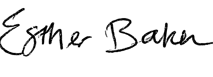 Esther Baker